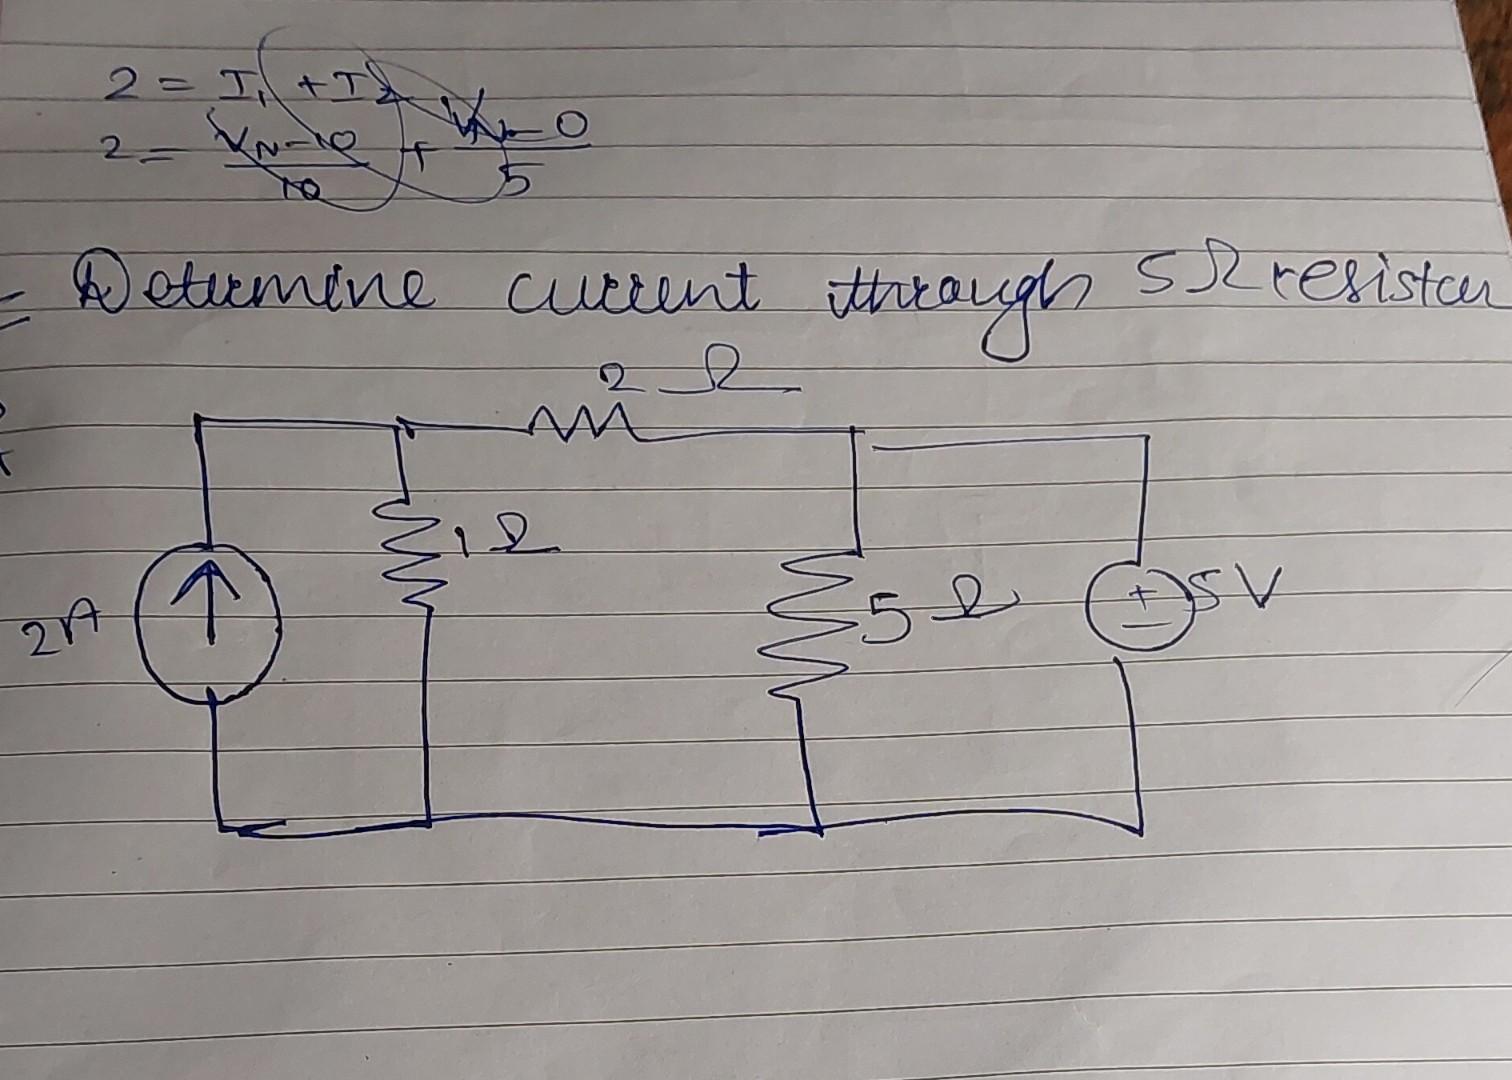 2 = I₁ + I₂
2 = VN-10/10 + VN-0/5
Determine current through 5Ω resistor
2 Ω
1 Ω
2A
5 Ω
+
-
5 V